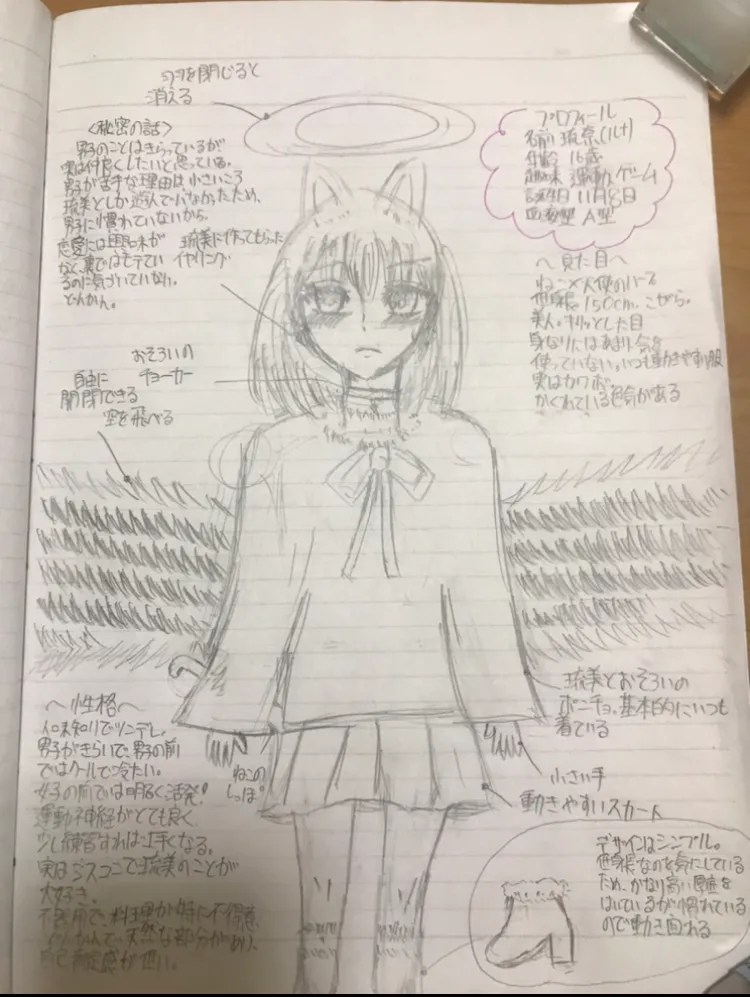 羽を閉じると
消える
<秘密の話>
男のことはきらっているが
実は仲良くしたいと思っている。
男が苦手な理由は小さいころ
琉美としか遊んでいなかったため、
男に慣れていないから。
恋愛には興味が
なく、裏ではモテてい
るのに気づいていない。
どんかん。
琉美に作ってもらった
イヤリング
おそろいの
チョーカー
自由に
開閉できる
空を飛べる
プロフィール
名前 琉奈(ルナ)
年齢 16歳
趣味 運動、ゲーム
誕生日 11月8日
血液型 A型
〜見た目〜
ねこ×天使のハーフ
身長150cm、こがら。
美人、キリッとした目
身なりにはあまり気を
使っていない。いつも動きやすい服
実はカワボ
かくれている色気がある
〜性格〜
人見知りでツンデレ。
男子がきらいで、男の前
ではクールで冷たい。
女子の前では明るく活発!
運動神経がとても良く、
少し練習すれば上手くなる。
実はシスコンで琉美のことが
大好き。
不器用で、料理が特に不得意
どんかんで、天然な部分があり、
自己肯定感が低い。
ねこの
しっぽ
琉美とおそろいの
ポンチョ。基本的にいつも
着ている
小さい手
動きやすいスカート
デザインはシンプル。
低身長なのを気にしている
ため、かなり高い厚底を
はいているが慣れている
ので動き回れる